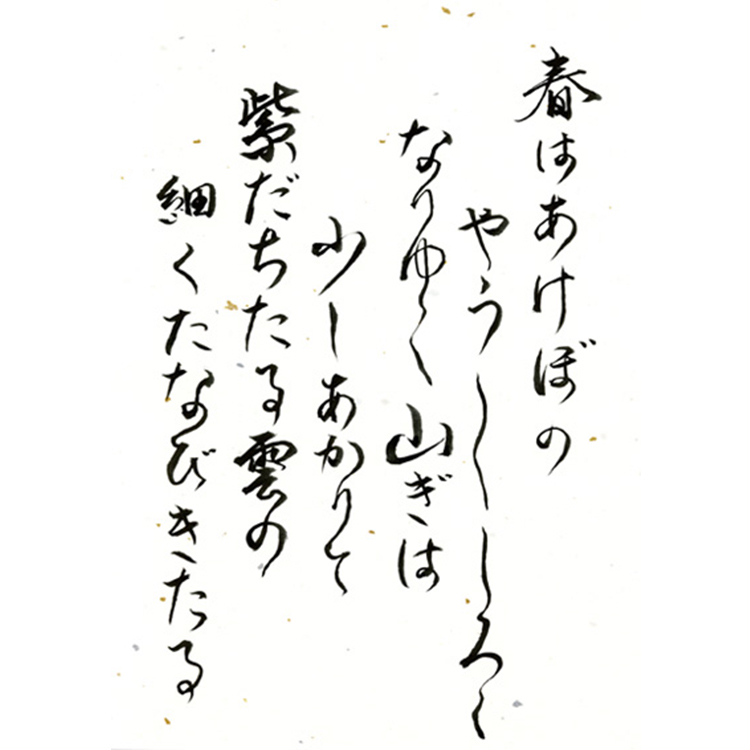 春はあけぼの
やう〳〵しろく
なりゆく山ぎは
少しあかりて
紫だちたる雲の
細くたなびきたる